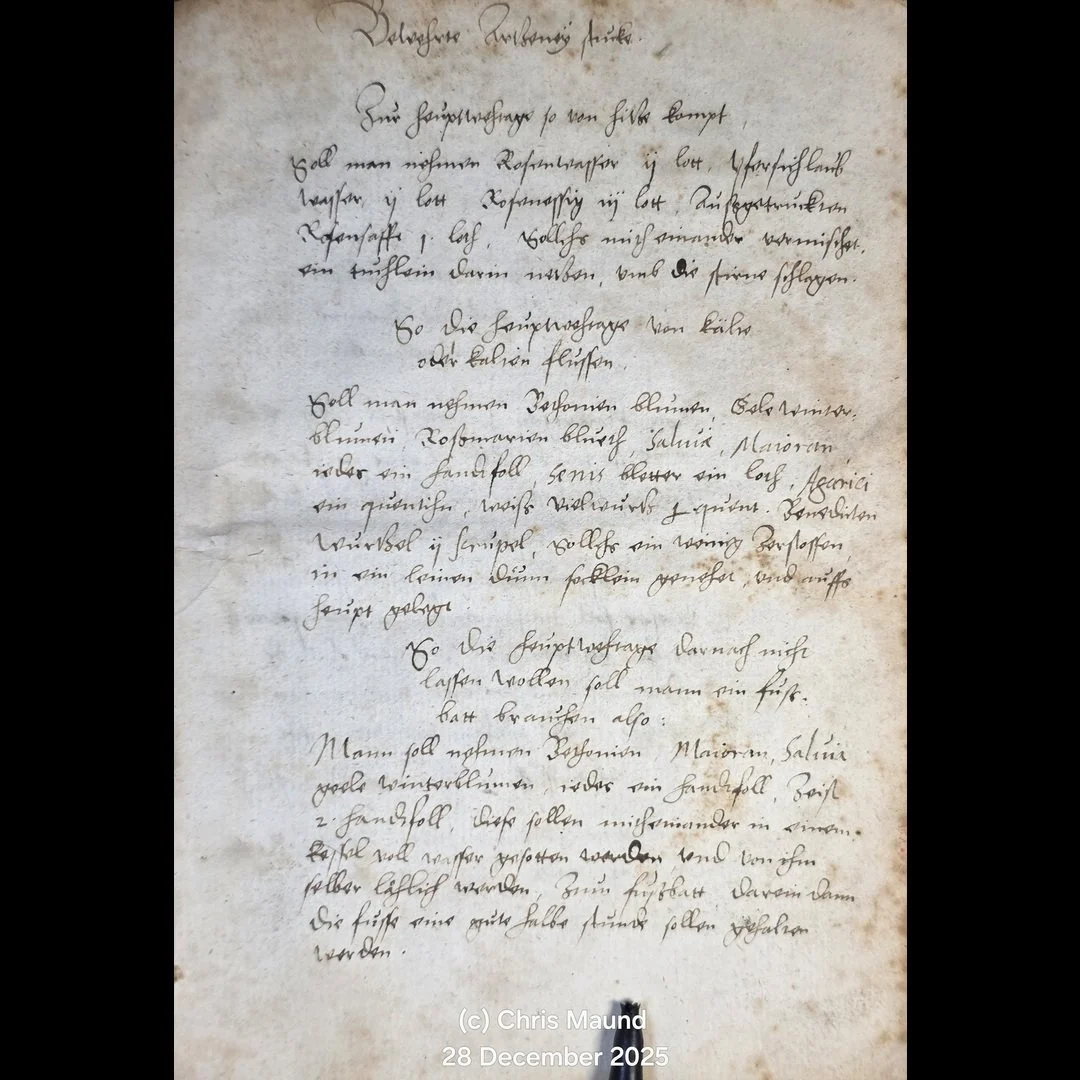 Bewehrte Artzeney stucke.
Zur heuptwehtage so von hitze kompt
Soll man nehmen Rosenwasser ij lott, Pfersichlaub
wasser ij lott Rosenessig iij lott, Außgetruckten
Rosensafft 1. loth, Sollchs mitt einander vermischet,
ein tuchlein darin netzen, umb die stirne schlagen.
So die heuptwehtage von kälte
oder kalten flussen.
Soll man nehmen Bethonien blumen, Gele winter-
blumen, Roßmarien blueth, Salvia, Maioran,
iedes ein handtfoll, Senis bletter ein loth, Agarici
ein quentihn, weiß vielwurtz quent. Benedicten
wurtzel ij scrupel, Sollchs ein wenig zerstossen,
in ein leinen dünn secklein genehet, und auffs
heupt gelegt.
So die heuptwehtage darnach nicht
lassen wollen soll mann ein fuß-
batt brauchen also:
Mann soll nehmen Bethonien, Maioran, Salvia
geele winterblumen, iedes ein handtfoll,
2. handtfoll, diese sollen mitheinander in einem
kessel voll wasser gesotten werden und von ihm
selber lählich werden, Zum fußbatt darein dann
die fusse eine gute halbe stunde sollen gehalten
werden.
(c) Chris Maund
28 December 2025